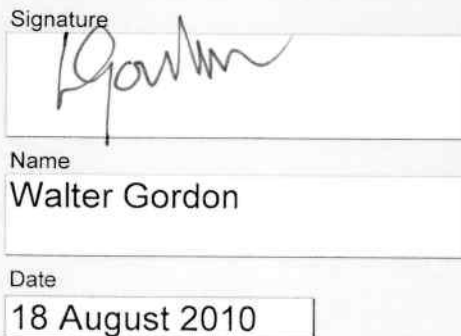 Signature
Name
Walter Gordon
Date
18 August 2010